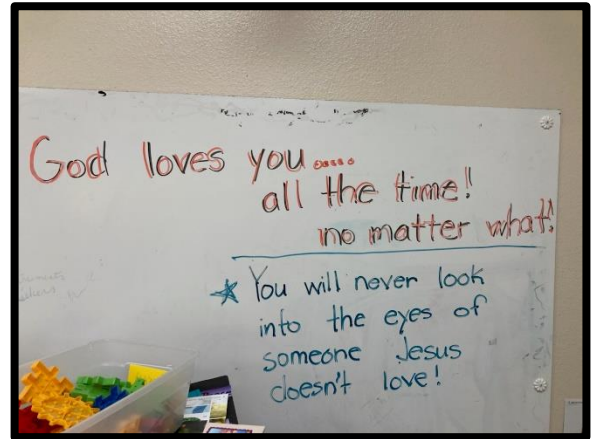 God loves you.....
all the time!
no matter what!
★ You will never look
into the eyes of
someone Jesus
doesn't love!